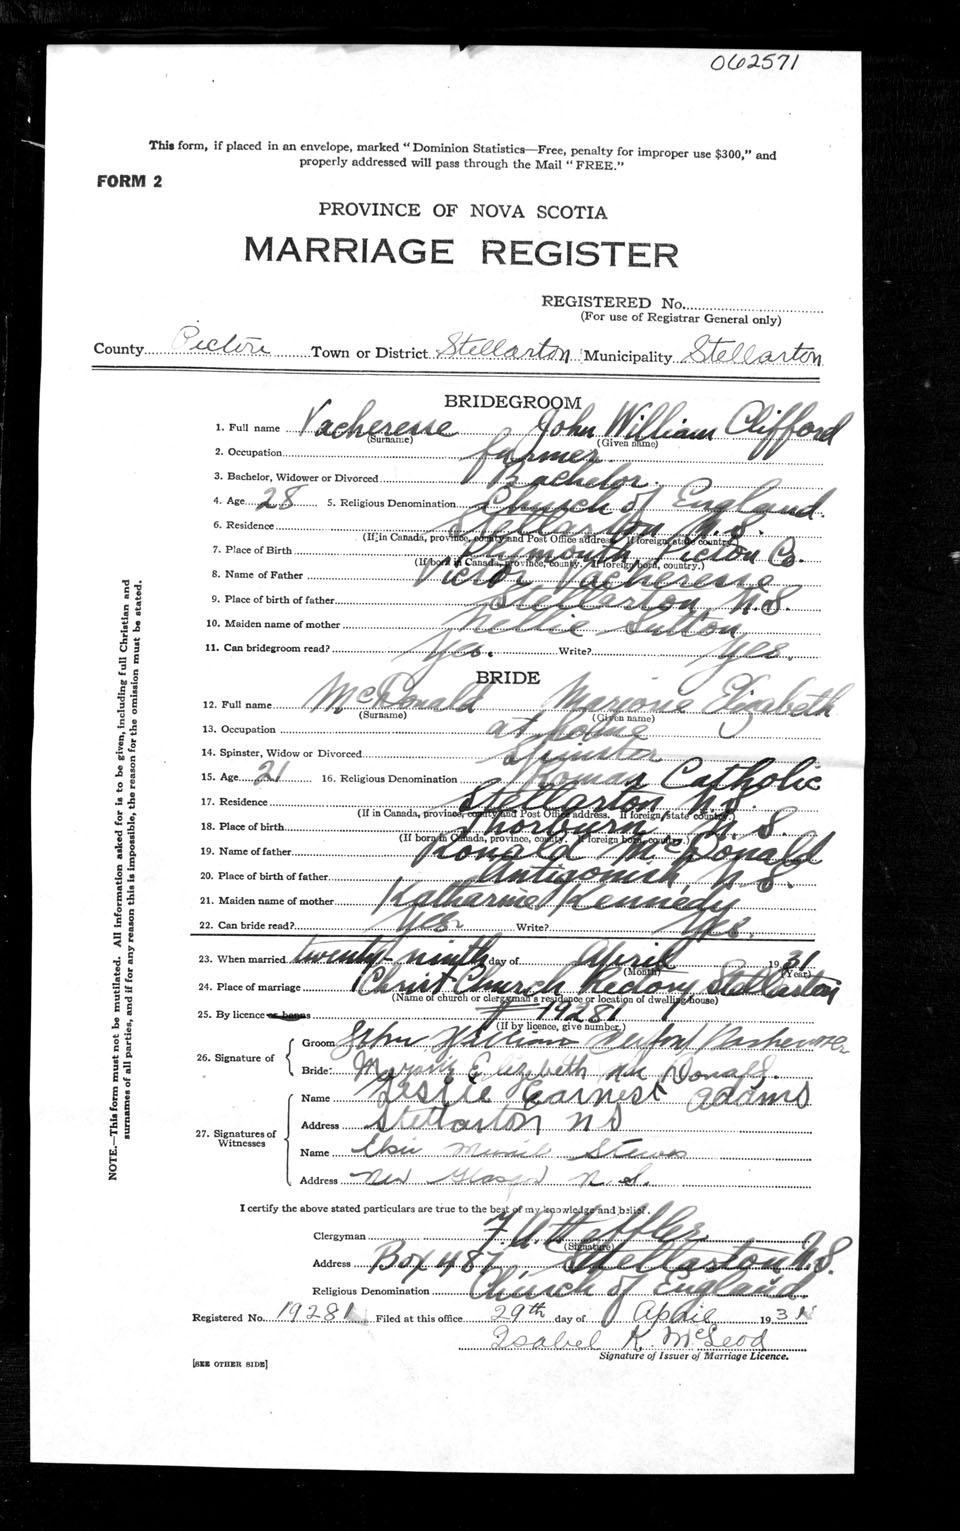 062571
This form, if placed in an envelope, marked "Dominion Statistics—Free, penalty for improper use $300," and
properly addressed will pass through the Mail "FREE."
FORM 2
PROVINCE OF NOVA SCOTIA
MARRIAGE REGISTER
REGISTERED No.
(For use of Registrar General only)
County Pictou Town or District Stellarton Municipality Stellarton
BRIDEGROOM
1. Full name Vacheresse John William Clifford
(Surname) (Given name)
2. Occupation farmer
3. Bachelor, Widower or Divorced Bachelor
4. Age 28 5. Religious Denomination Church of England.
6. Residence Stellarton N.S.
(If in Canada, province, county and Post Office address. If foreign state country.)
7. Place of Birth Plymouth, Pictou Co.
(If born in Canada, province, county. If foreign born, country.)
8. Name of Father Victor Vacheresse
9. Place of birth of father Stellarton, N.S.
10. Maiden name of mother Nellie Sutton
11. Can bridegroom read? Yes. Write? Yes.
BRIDE
12. Full name McDonald Marjorie Elizabeth
(Surname) (Given name)
13. Occupation at home
14. Spinster, Widow or Divorced Spinster
15. Age 21 16. Religious Denomination Roman Catholic
17. Residence Stellarton N.S.
(If in Canada, province, county and Post Office address. If foreign state country.)
18. Place of birth Thorburn N.S.
(If born in Canada, province, county. If foreign born, country.)
19. Name of father Ronald McDonald
20. Place of birth of father Antigonish, N.S.
21. Maiden name of mother Katharine Kennedy
22. Can bride read? Yes Write? Yes.
23. When married twenty-ninth day of April 1931
(Month) (Year)
24. Place of marriage Christ Church Rectory Stellarton
(Name of church or clergyman's residence or location of dwelling house)
25. By licence or banns # 19281
(If by licence, give number.)
26. Signature of
Groom John William Clifford
Bride: Marjorie Elizabeth McDonald.
27. Signatures of
Witnesses
Name Leslie Earnest Adams
Address Stellarton NS
Name Elsie
Address New Glasgow N.S.
I certify the above stated particulars are true to the best of my knowledge and belief.
Clergyman
(Signature)
Address Box 487, Stellarton N.S.
Religious Denomination Church of England
Registered No. 19281 Filed at this office 29th day of April 1931
Isabel K. McLeod
Signature of Issuer of Marriage Licence.
[SEE OTHER SIDE]
NOTE.—This form must not be mutilated. All information asked for is to be given, including full Christian and
surnames of all parties, and if for any reason this is impossible, the reason for the omission must be stated.